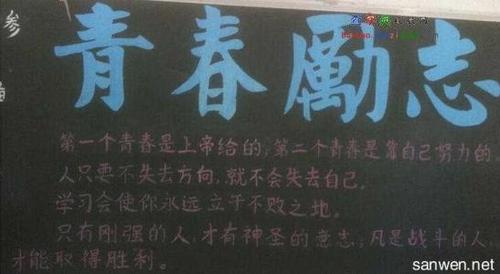 参
青春励志
第一个青春是上帝给的;第二个青春是靠自己努力的.
人只要不失去方向,就不会失去自己.
学习会使你永远立于不败之地.
只有刚强的人,才有神圣的意志,凡是战斗的人,
才能取得胜利。
sanwen.net